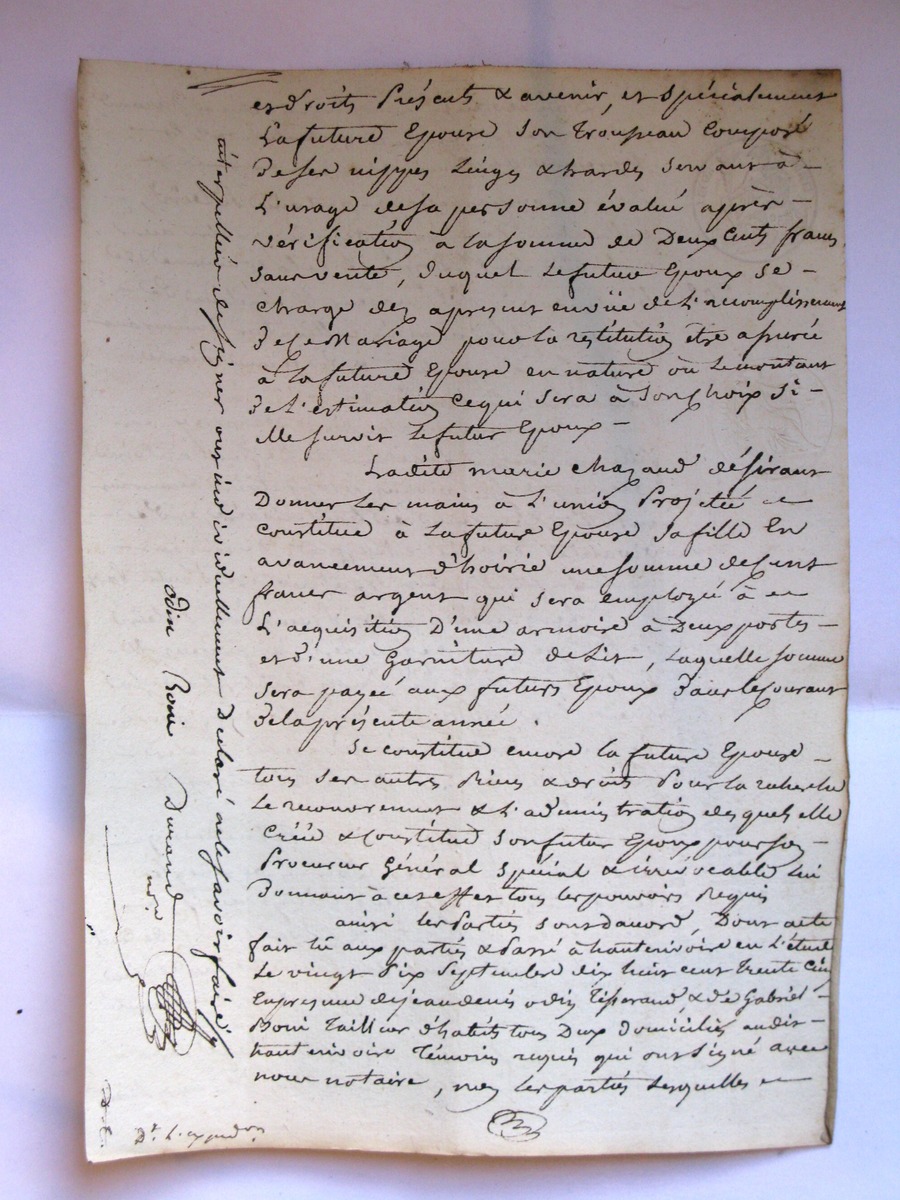 et droits Présents & avenir, et Spécialement
La future Epouse Son Trousseau Composé
De ses nippes Linges & hardes servant à
L'usage de sa personne évalué après
vérification à la somme de Deux Cents francs
sans vente, duquel Le futur Epoux se
charge des apresent en vüe de L'accomplissement
De ce Mariage pour la restitution être assurée
à la future Epouse en nature ou Le montant
De L'estimation ce qui sera à son choix Si
elle survit Le futur Epoux
Ladite marie chazaud désirant
Donner Les mains à L'union Projetée
Constitue à La future Epouse Sa fille En
avancement d'hoirie une somme de Cent
francs argent qui sera employée à
L'acquisition D'une armoire à Deux portes
et d'une Garniture de Lit, Laquelle somme
sera payée aux futurs Epoux Dans le Courant
De la présente année.
Se constitue encore la future Epouse
tous ses autres Biens & droits Pour la recherche
Le recouvrement & L'administration desquels elle
Créée & Constitue son futur Epoux pour son
Procureur Général Spécial & irrevocable Lui
Donnant à cet effet tous les pouvoirs Requis
ainsi les Parties sont d'accord, Dont acte
fait lû aux parties & Passé à hauterivoire en L'étude
Le vingt Six Septembre dix huit cent Trente Cinq
En presence de jean denis odin Tisserand & de Gabriel
Boni Tailleur d'habits tous Deux domiciliés audit
hauterivoire Témoins requis qui ont signé avec
nous notaire, non les parties Lesquelles
interpellées de signer ont individuellement Déclaré ne le savoir faire
odin Boni Durand
nre
Dt. L'expedon